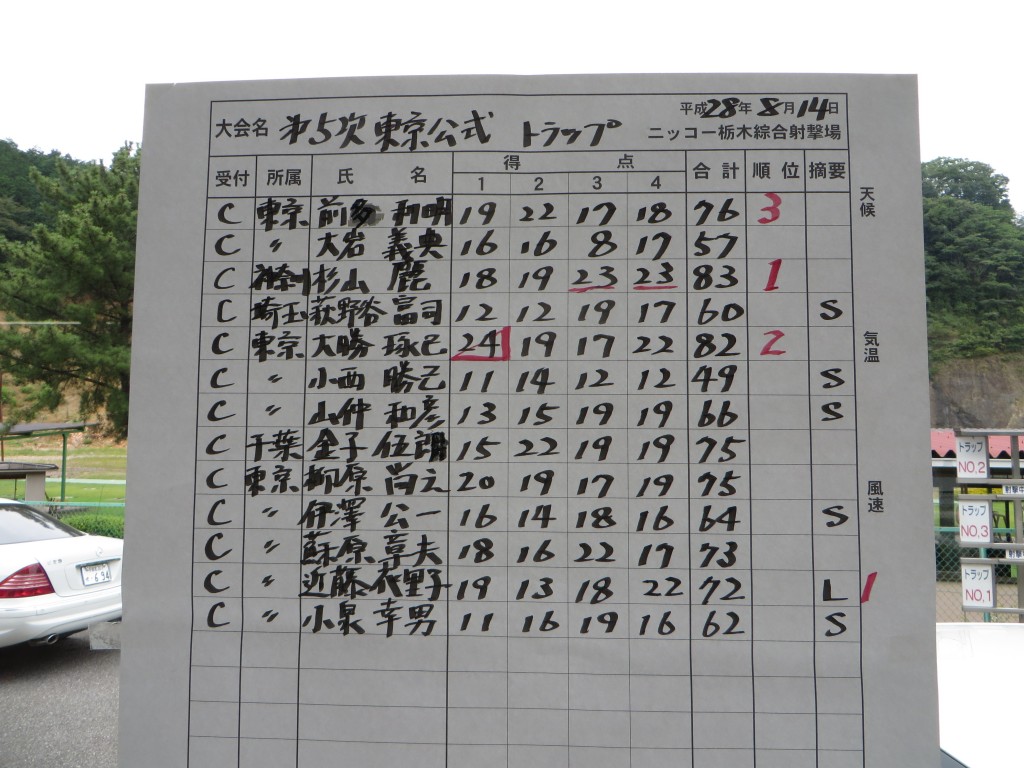 平成28年 8月14日
大会名 オ5次 東京公式 トラップ ニッコー栃木綜合射撃場
受付 所属 氏名 得点 合計 順位 摘要
1 2 3 4
C 東京 前多 和明 19 22 17 18 76 3
C 〃 大岩 義典 16 16 8 17 57
C 神奈川 杉山 19 18 23 23 83 1
C 埼玉 荻野谷 富司 12 12 19 17 60 S
C 東京 大勝 琢己 24 19 17 22 82 2
C 〃 小西 勝己 11 14 12 12 49 S
C 〃 山仲 和彦 13 15 19 19 66 S
C 千葉 金子 伍朗 15 22 19 19 75
C 東京 柳原 尚元 20 19 17 19 75
C 〃 伊澤 公一 16 14 18 16 64 S
C 〃 蘇原 章夫 18 16 22 17 73
C 〃 近藤 花里子 19 13 18 22 72 L 1
C 〃 小泉 幸男 11 16 19 16 62 S
天候
気温
風速
トラップ
NO.2
トラップ
NO.3
トラップ
NO.1
694